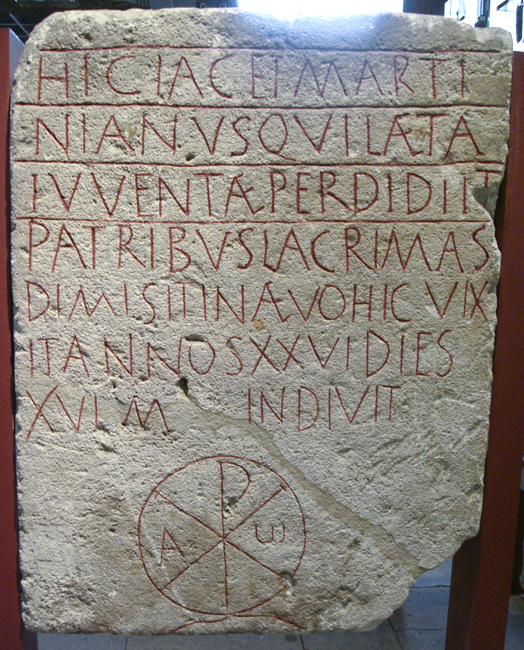 HICIACEIMARTI
NIANVSQVILÆTA
IVVENTÆPERDIDIT
PATRIBVSLACRIMAS
DIMISITINÆVOHICVIX
ITANNOSXXVIDIES
XVLM INDIVIT
A ω